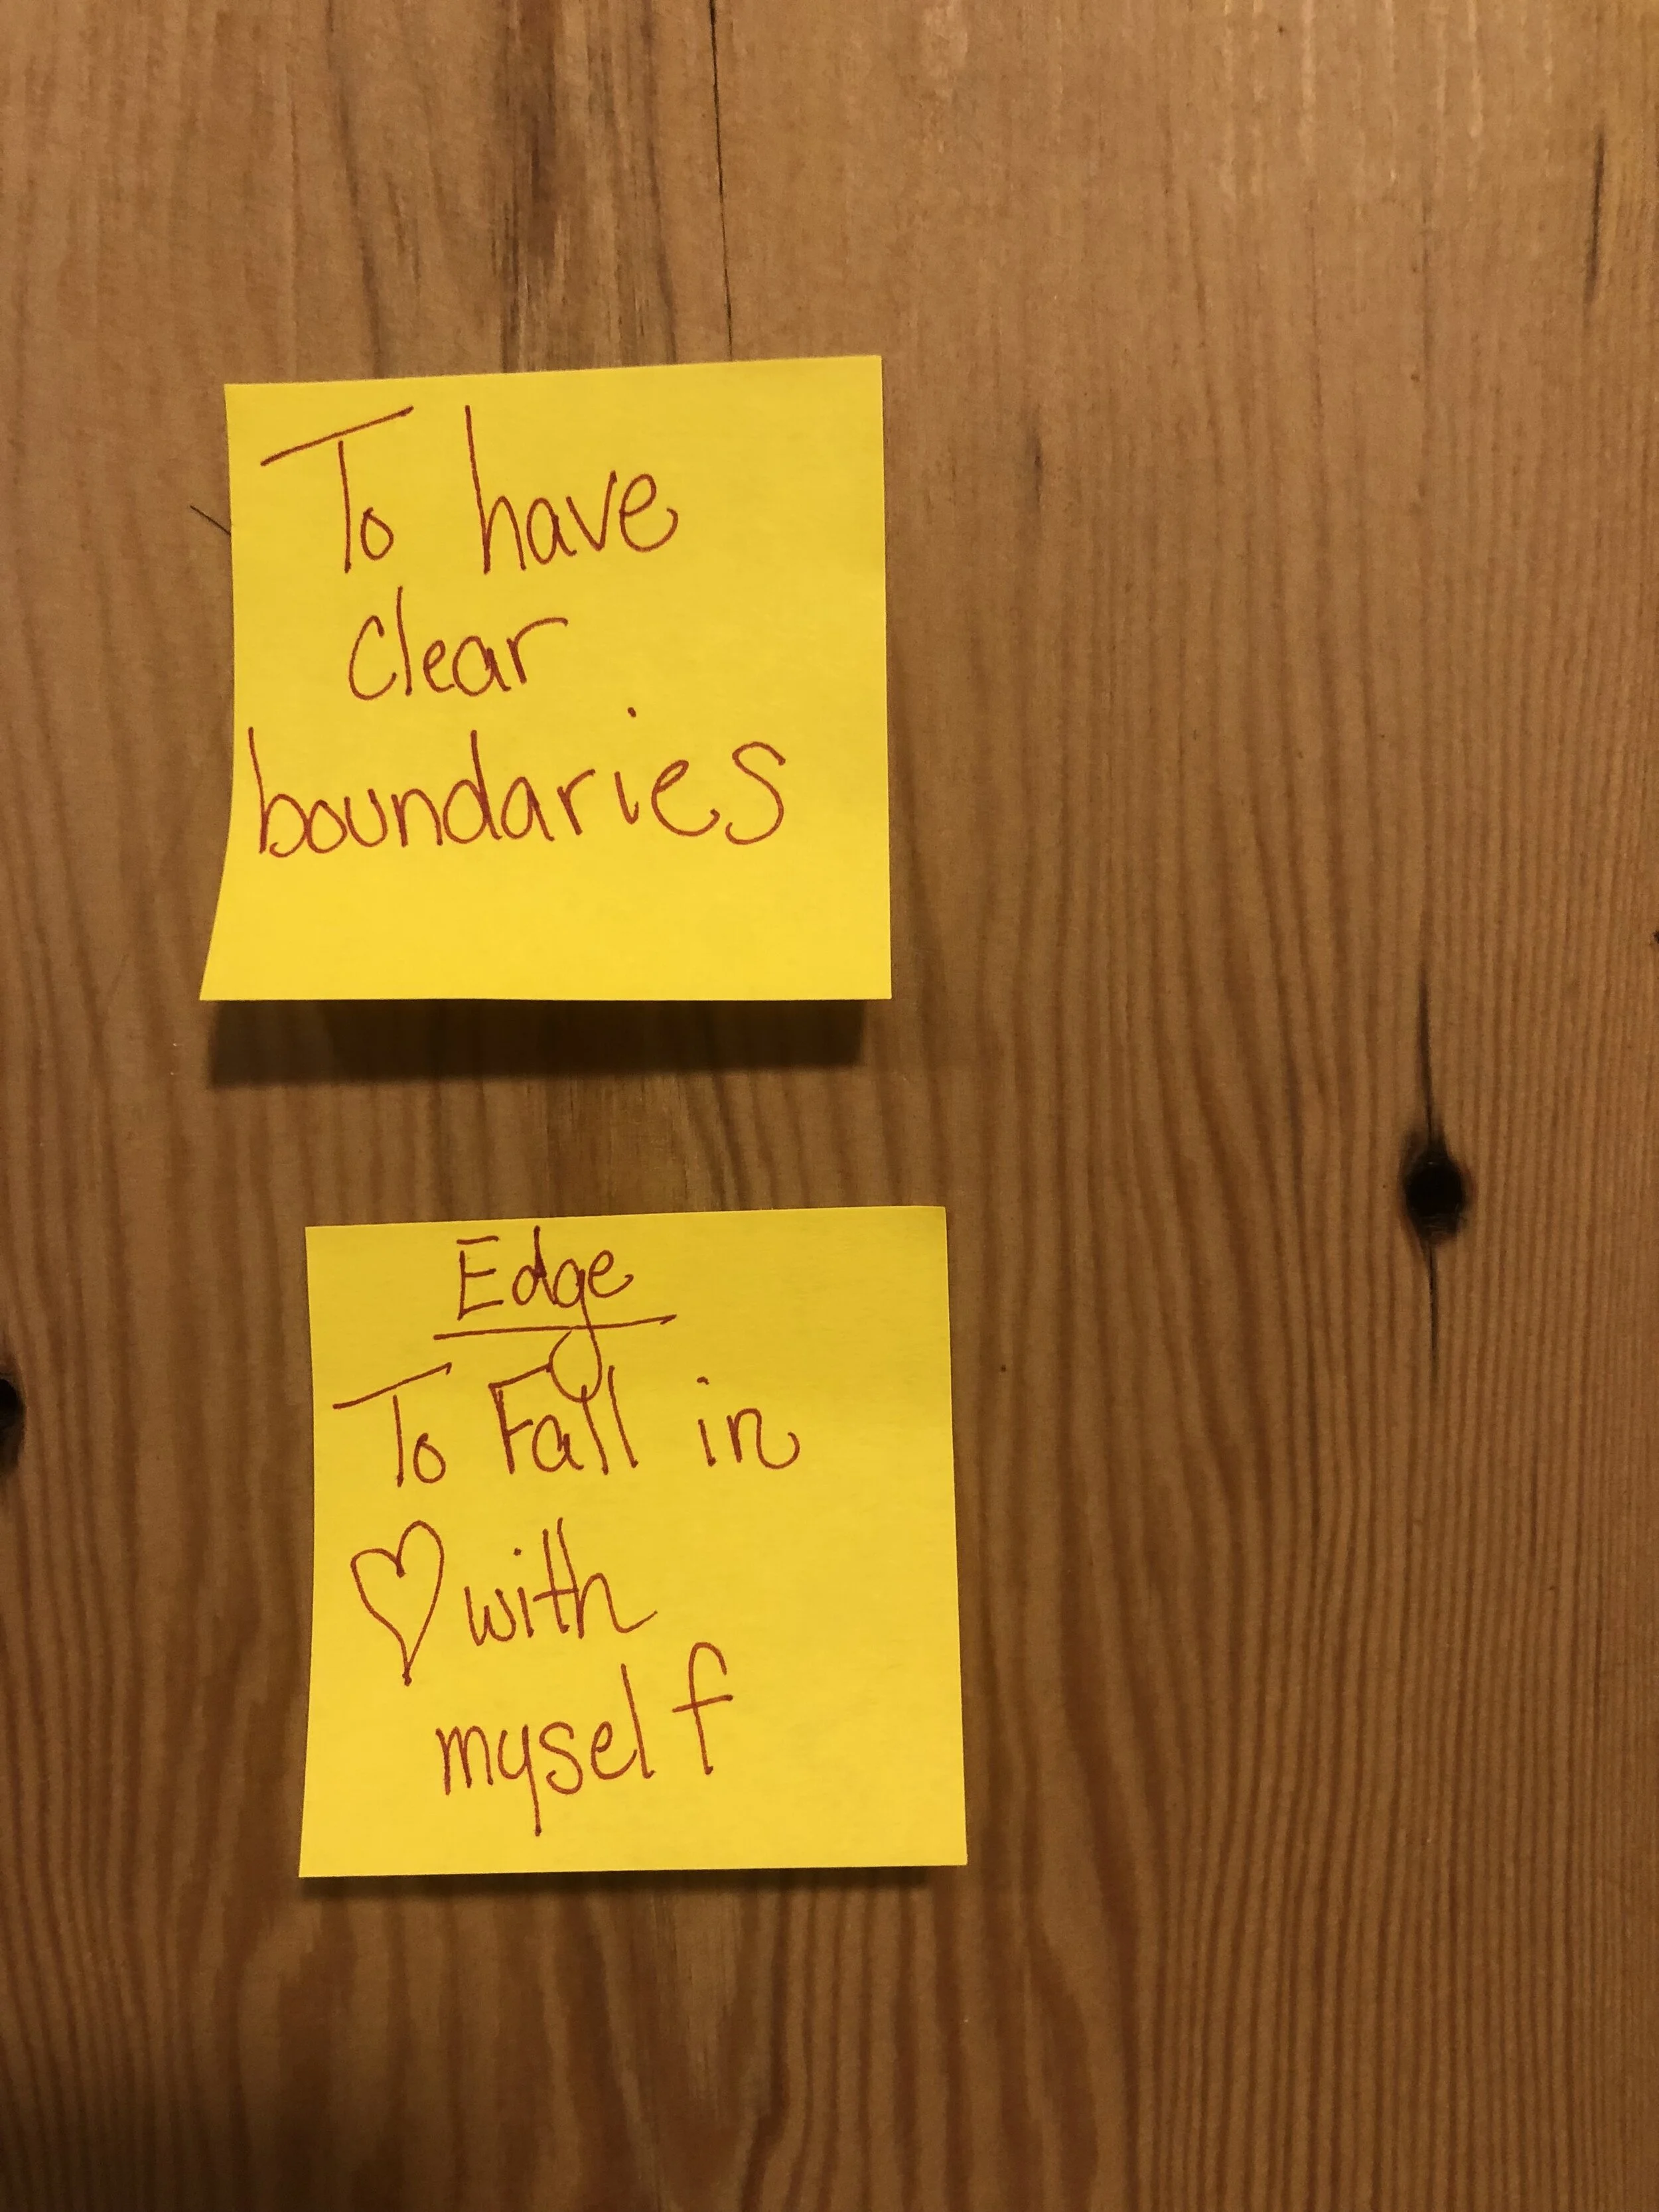 To have
clear
boundaries
Edge
To Fall in
♡ with
myself